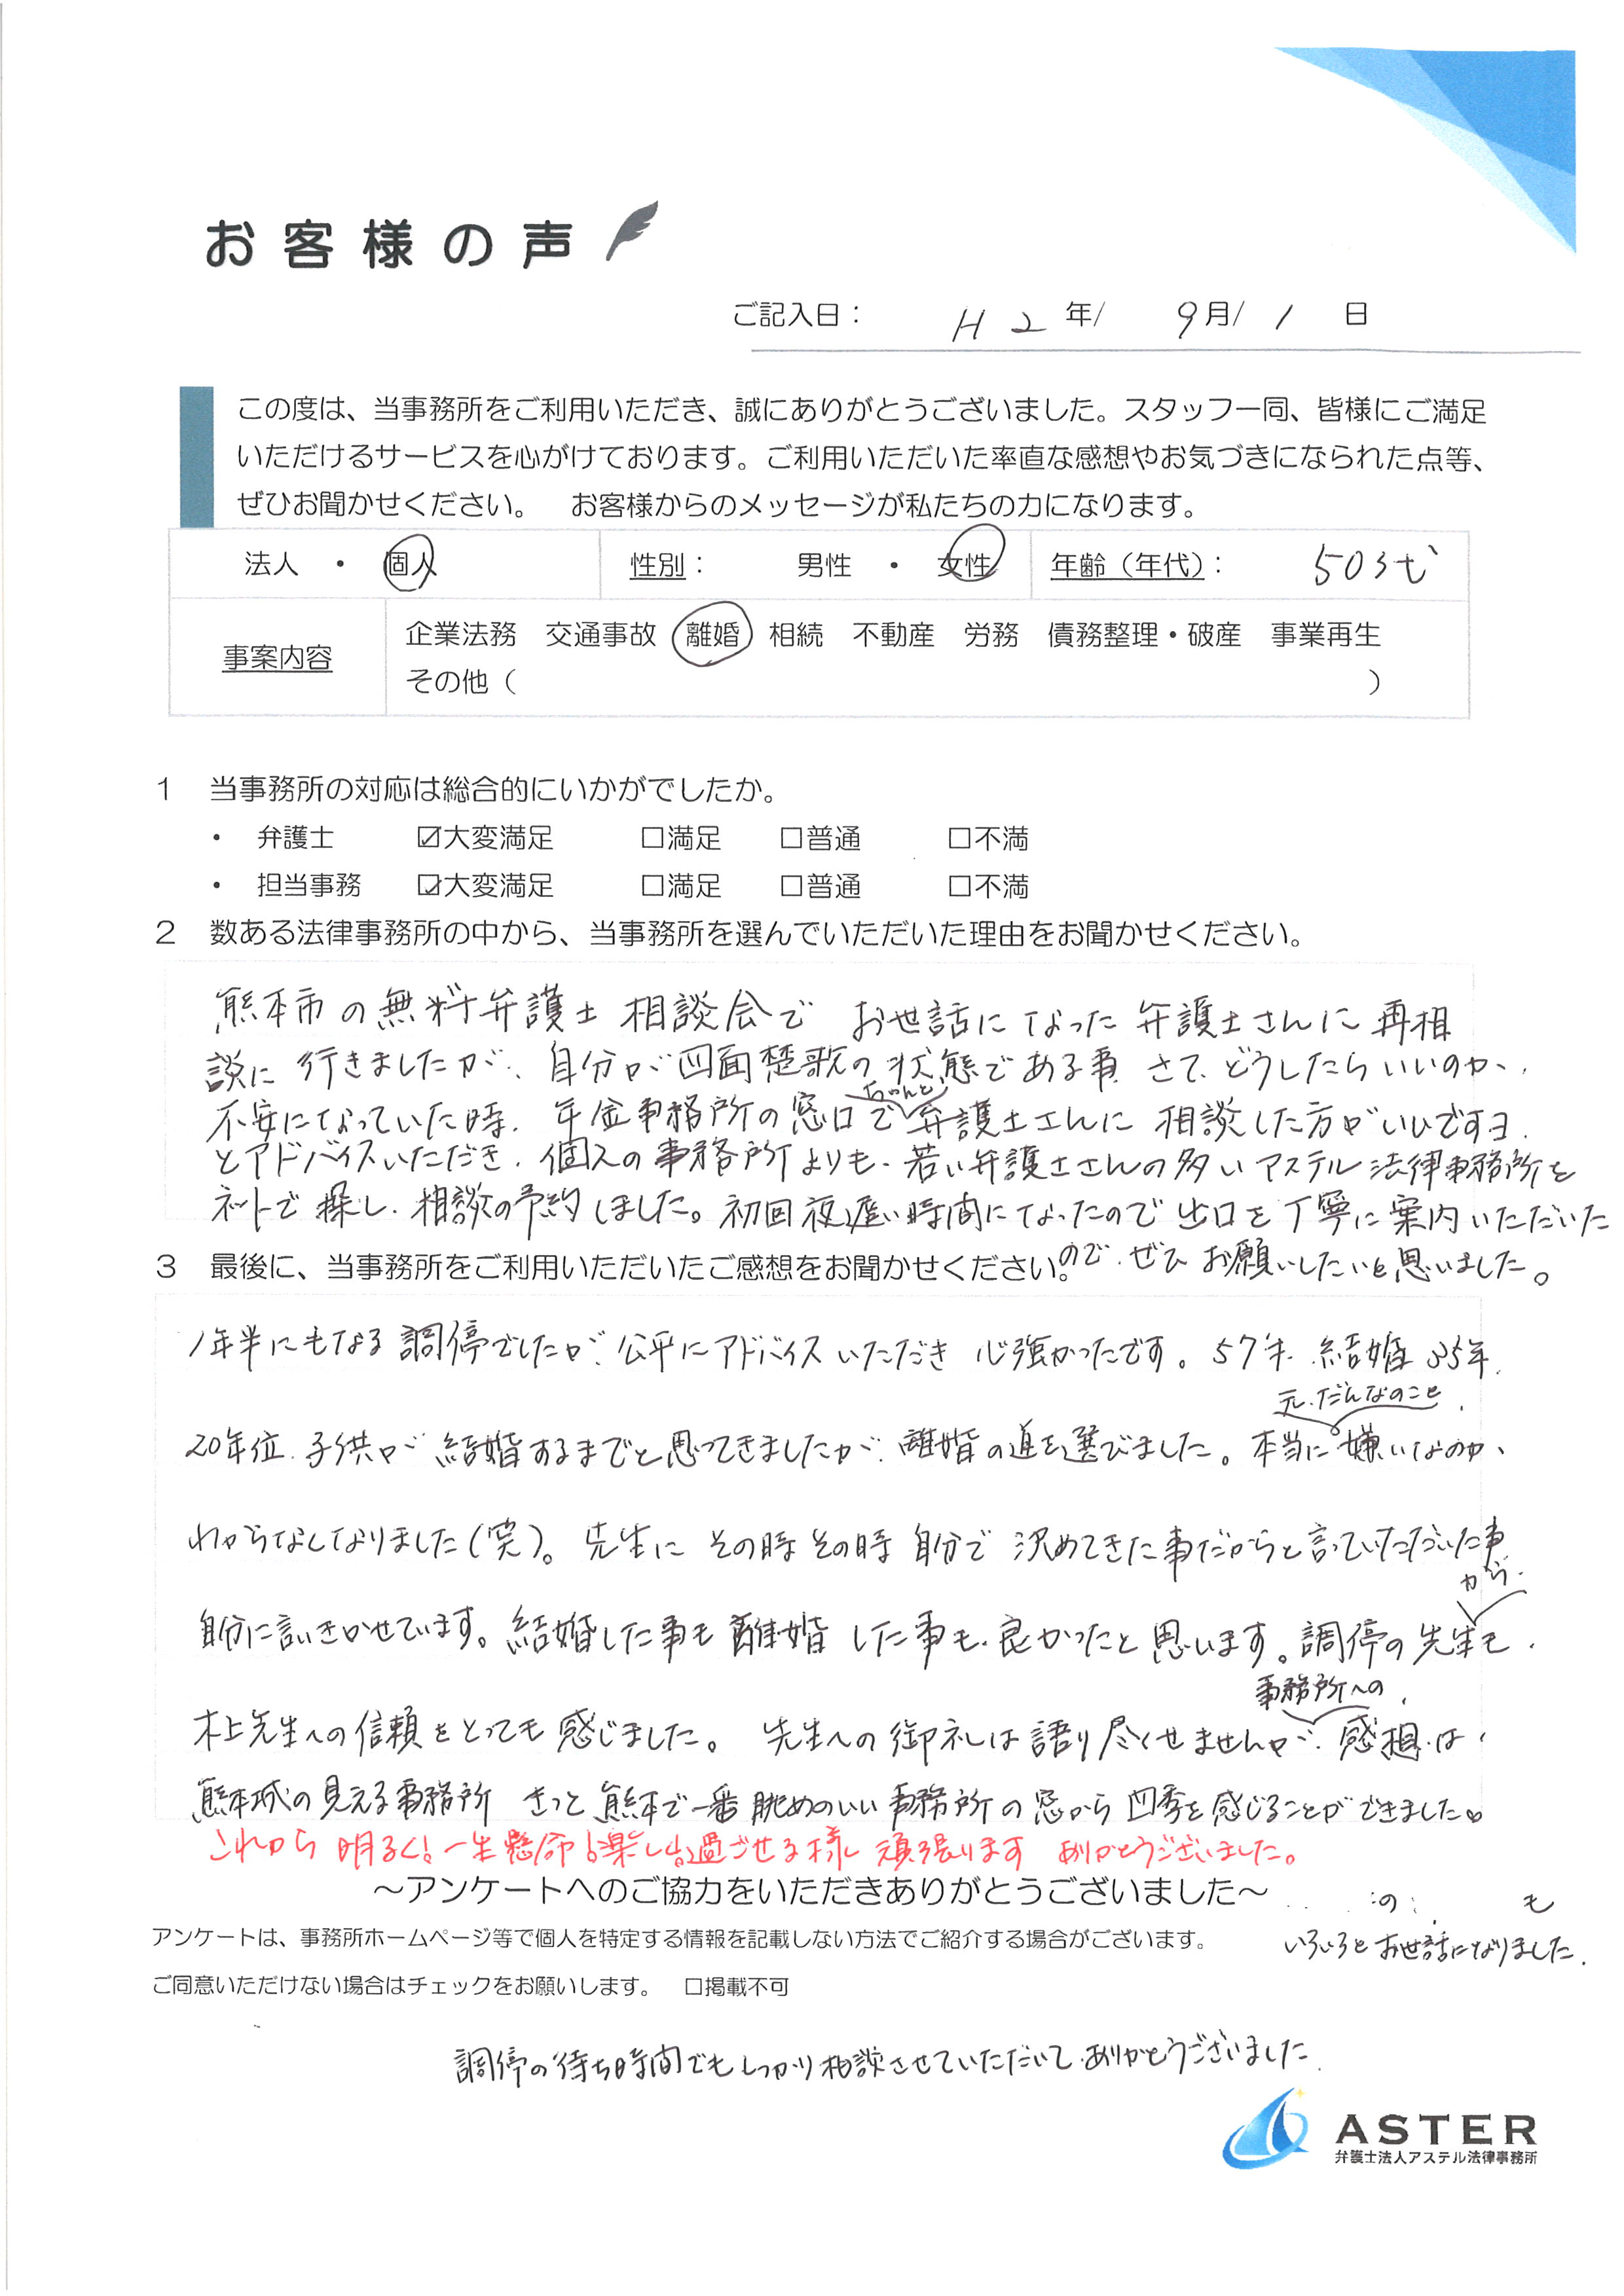 お客様の声
ご記入日： H2年/ 9月/ 1 日
この度は、当事務所をご利用いただき、誠にありがとうございました。スタッフ一同、皆様にご満足
いただけるサービスを心がけております。ご利用いただいた率直な感想やお気づきになられた点等、
ぜひお聞かせください。 お客様からのメッセージが私たちの力になります。
法人 ・ 個人 性別： 男性 ・ 女性 年齢（年代）： 50才代
事案内容 企業法務 交通事故 離婚 相続 不動産 労務 債務整理・破産 事業再生
その他（ ）
1 当事務所の対応は総合的にいかがでしたか。
・ 弁護士 ☑大変満足 □満足 □普通 □不満
・ 担当事務 ☑大変満足 □満足 □普通 □不満
2 数ある法律事務所の中から、当事務所を選んでいただいた理由をお聞かせください。
熊本市の無料弁護士相談会で お世話になった弁護士さんに再相
談に行きましたが、自分が四面楚歌の状態である事 さて、どうしたらいいのか、
不安になっていた時、年金事務所の窓口でちゃんと弁護士さんに相談した方がいいですヨ、
とアドバイスいただき、個人の事務所よりも、若い弁護士さんの多いアステル法律事務所を
ネットで探し、相談の予約しました。初回夜遅い時間になったので出口を丁寧に案内いただいた
ので、ぜひお願いしたいと思いました。
3 最後に、当事務所をご利用いただいたご感想をお聞かせください。
1年半にもなる調停でしたが、公平にアドバイスいただき 心強かったです。57才、結婚35年、
20年位、子供が結婚するまでと思ってきましたが、離婚の道を選びました。本当に元だんなのこと嫌いなのか、
わからなくなりました(笑)。先生に その時その時 自分で決めてきた事だからと言っていただいた事
自分に言いきかせています。結婚した事も離婚した事も、良かったと思います。調停の先生からも、
木上先生への信頼をとっても感じました。 先生への御礼は語り尽くせませんが、事務所への感想は、
熊本城の見える事務所 きっと熊本で一番眺めのいい事務所の窓から四季を感じることができました。
これから 明るく！一生懸命！楽しく過ごせる様 頑張ります ありがとうございました。
～アンケートへのご協力をいただきありがとうございました～
の も
いろいろとお世話になりました。
アンケートは、事務所ホームページ等で個人を特定する情報を記載しない方法でご紹介する場合がございます。
ご同意いただけない場合はチェックをお願いします。 □掲載不可
調停の待ち時間でもしっかり相談させていただいて、ありがとうございました
ASTER
弁護士法人アステル法律事務所